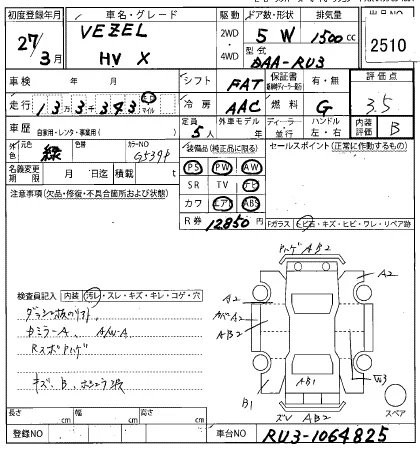 初度登録年月
車名・グレード
駆動
ドア数・形状
排気量
27年3月
VEZEL
HV X
2WD
4WD
5 W
1500cc
型式
DAA-RU3
2510
車検 年 月
シフト
FAT
保証書
有・無
評価点
3.5
走行
13万3千343
マイル
冷房
AAC
燃料
G
車歴
自家用・レンタ・事業用( )
定員
5人
外車モデル
年
ディーラー
並行
ハンドル
左・右
内装評価
B
外色
元色
緑
色替
カラーNO
G539P
装備品(純正品に限る)
セールスポイント(正常に作動するもの)
名義変更期限
月 日迄
積載
t
PS PW AW
SR TV ナビ
カワ エアB ABS
注意事項(欠品・修復・不具合箇所および状態)
R券
12850円
Fガラス
トビ石・キズ・ヒビ・ワレ・リペア跡
検査員記入
内装
汚レ・スレ・キズ・キレ・コゲ・穴
RスポAハゲ
キズ、B、
A B2
A2
A2
A2
A B2
AB1
W3
B1
スレ AB2
スペア
長さ cm
幅 cm
高さ cm
登録NO
車台NO
RU3-1064825